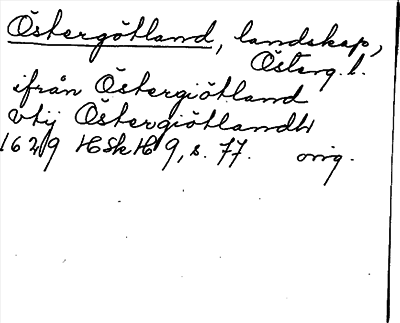 Östergötland, landskap,
Österg. l.
ifrån Östergiötland
vtij Östergiötlandh
1629 HSkH 9, s. 77. orig.